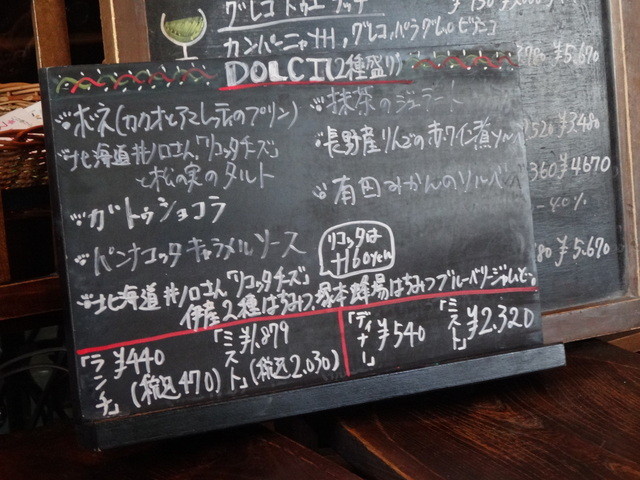 グレコ
カンパーニャ州, グレコ, パラグレル ビアンコ
DOLCI(2種盛り)
ボネ(カカオとアマレッティのプリン)
北海道井ノ口さん「リコッタチーズ」
と松の実のタルト
ガトゥショコラ
パンナコッタ キャラメルソース
抹茶のジェラート
長野産りんごの赤ワイン煮
有田みかんのソルベ
リコッタは
+160yen
北海道井ノ口さん「リコッタチーズ」
2種はちみつ 塚本蜂場はちみつブルーベリー
「ランチ」
¥440
(税込470)
「ミスト」
¥1,879
(税込2,030)
「ディナー」
¥540
「ミスト」
¥2,320
¥5,670
2520 ¥3,480
360 ¥4,670
-40%
¥5,670